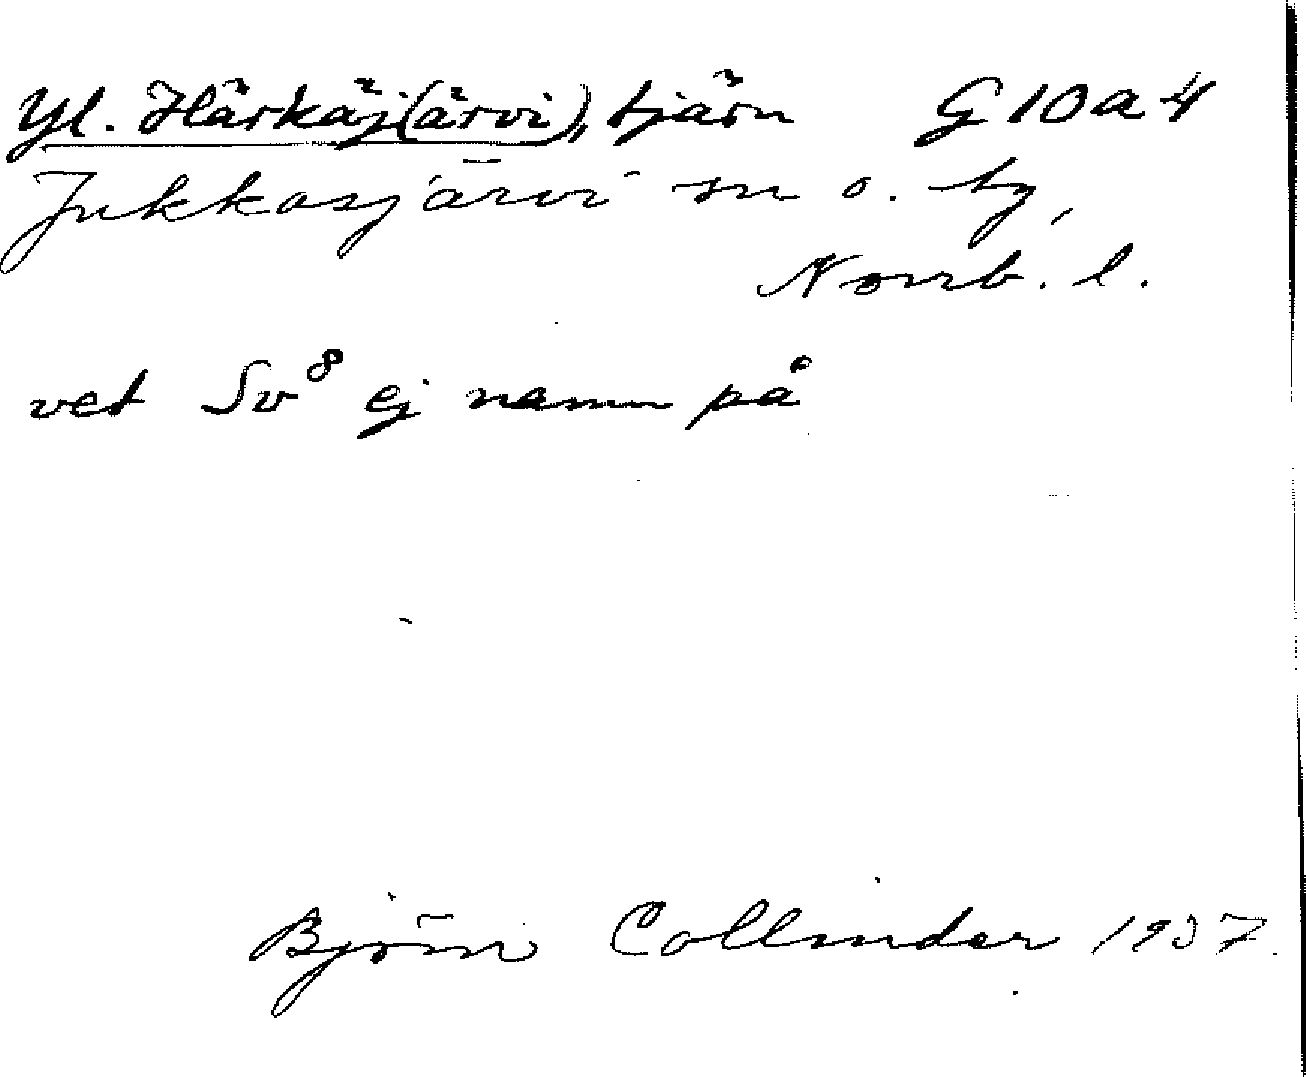 Yl. Härkäj(ärvi), tjärn G 10 a 4
Jukkasjärvi sn o. by,
Norrb. l.
vet Sv⁸ ej namn på
Björn Collinder 1937.